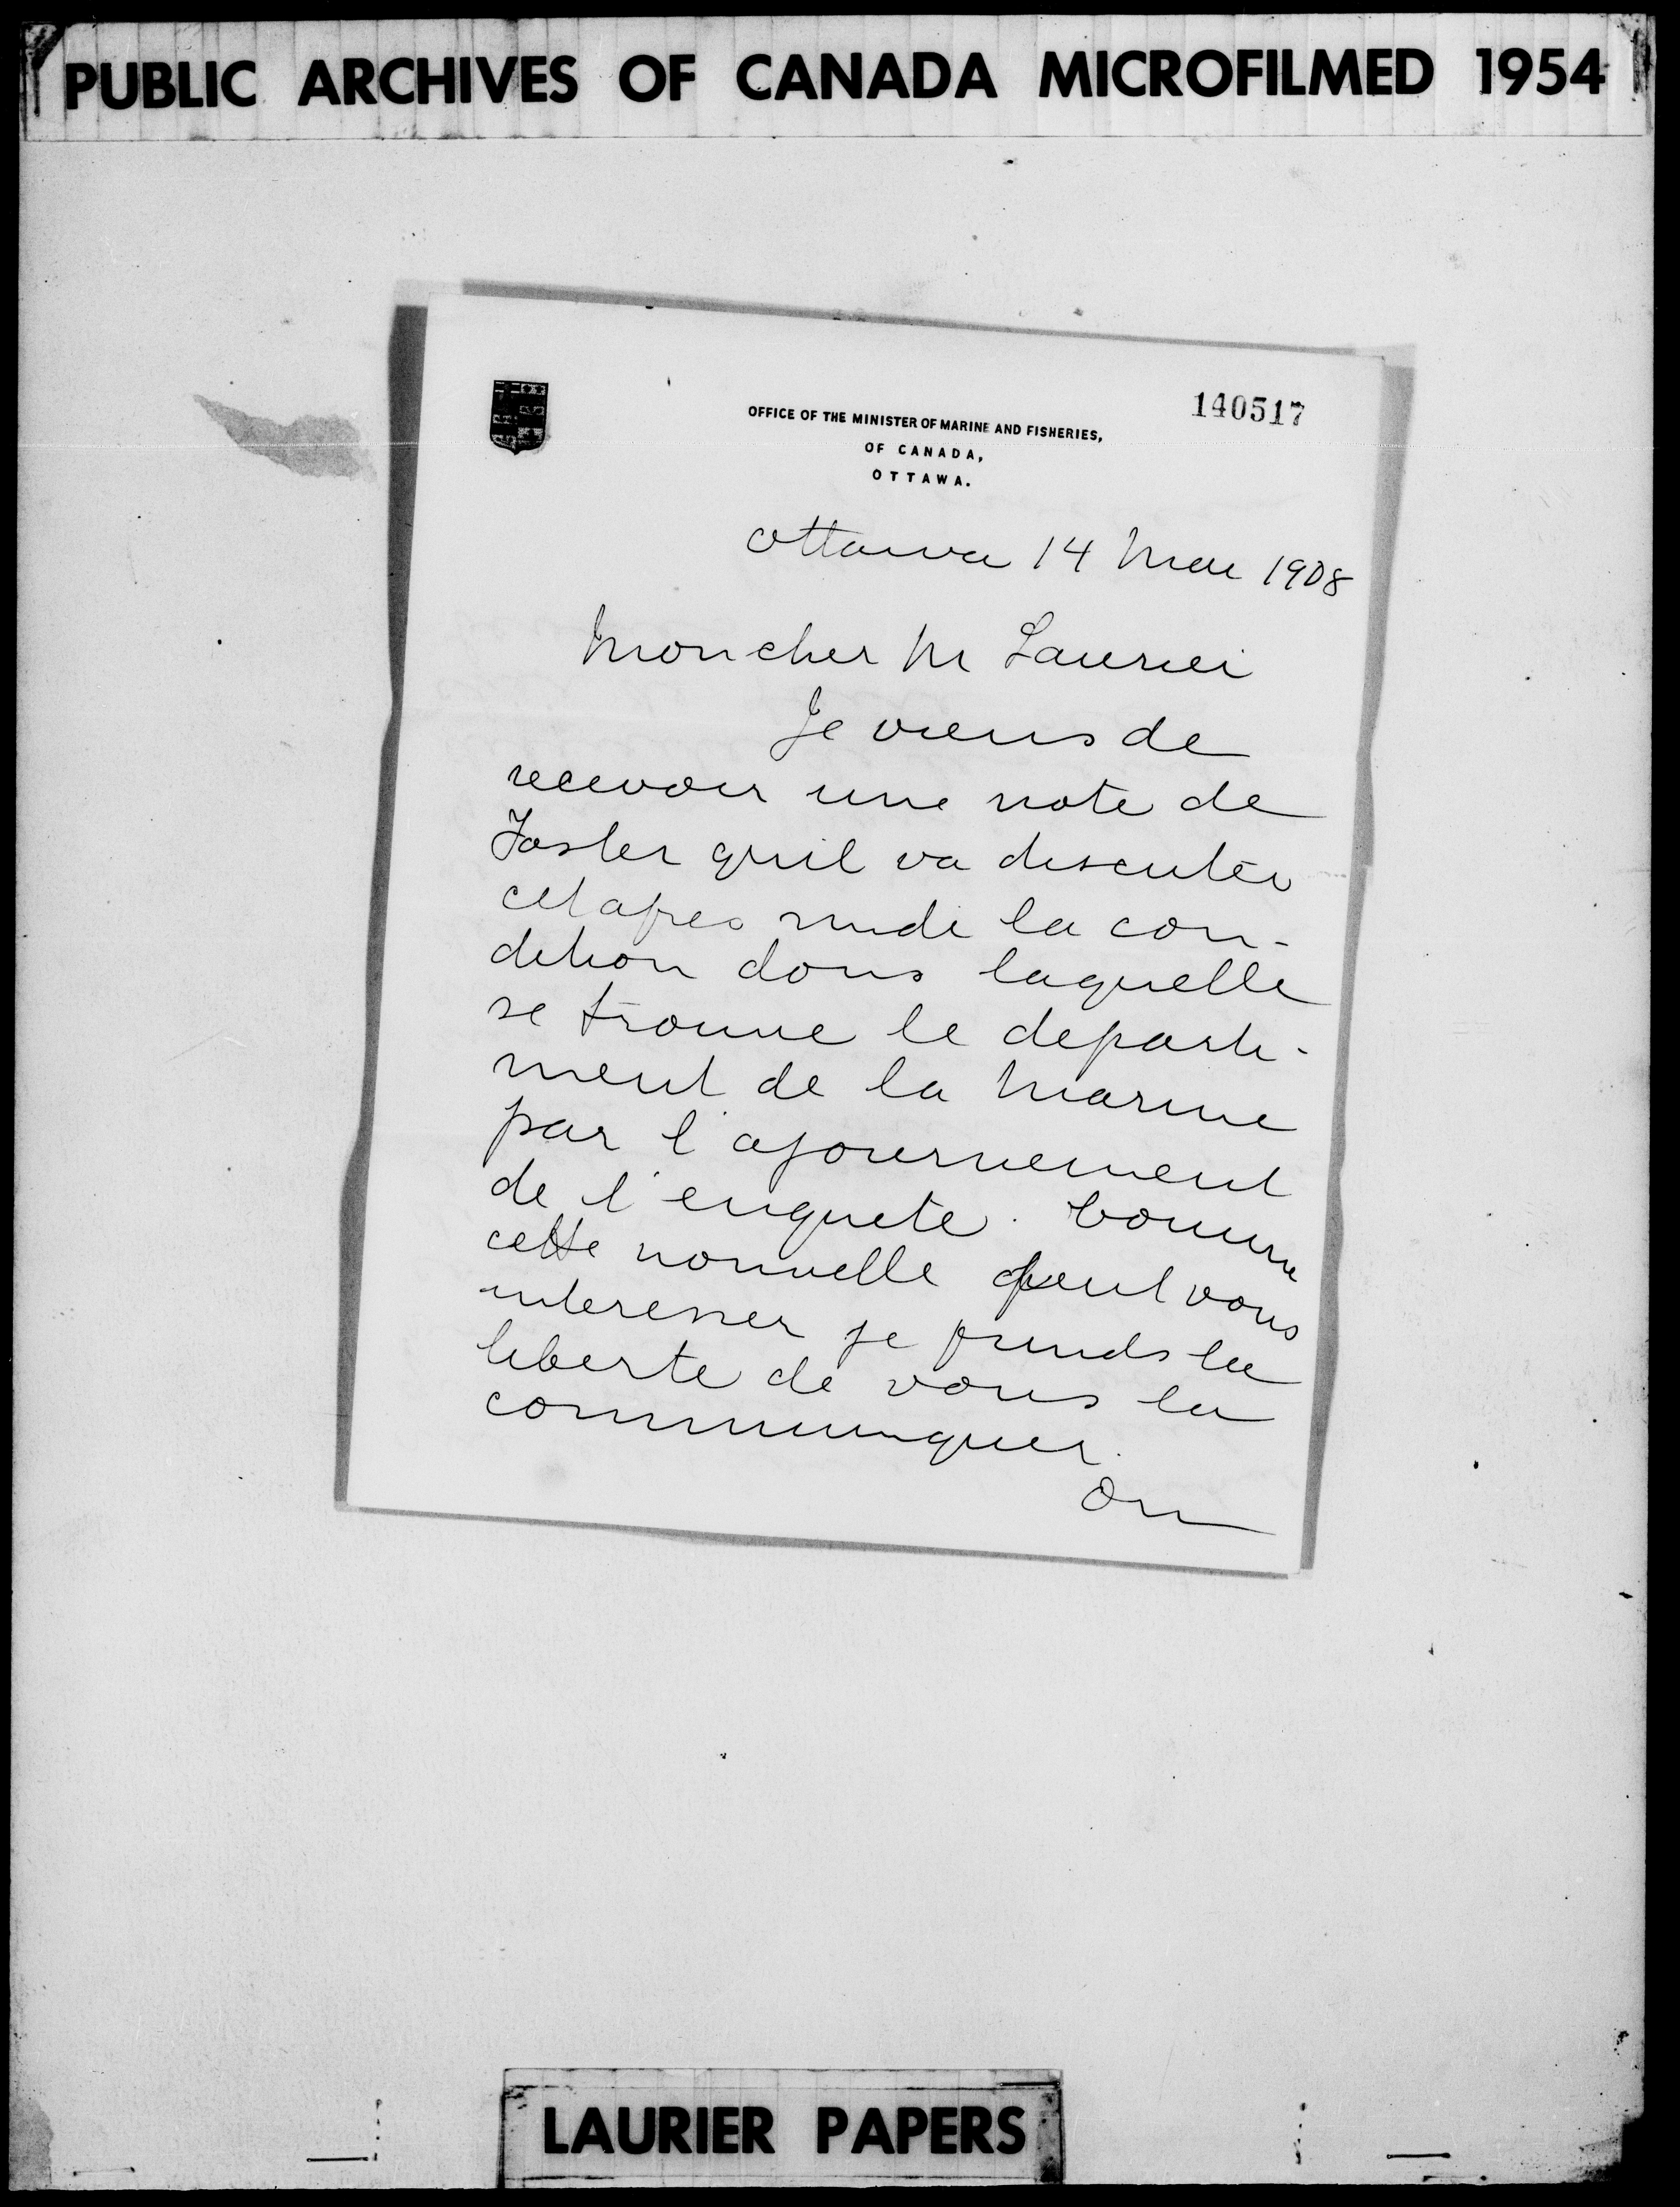 PUBLIC ARCHIVES OF CANADA MICROFILMED 1954
140517
OFFICE OF THE MINISTER OF MARINE AND FISHERIES,
OF CANADA,
OTTAWA.
Ottawa 14 Mai 1908
Mon cher M Laurier
Je viens de
recevoir une note de
Foster quil va discuter
cet apres midi la con-
dition dans laquelle
se trouve le departe-
ment de la Marine
par l'ajournement
de l'enquete. Comme
cette nouvelle peut vous
interesser je prends la
liberte de vous la
communiquer.
On
LAURIER PAPERS